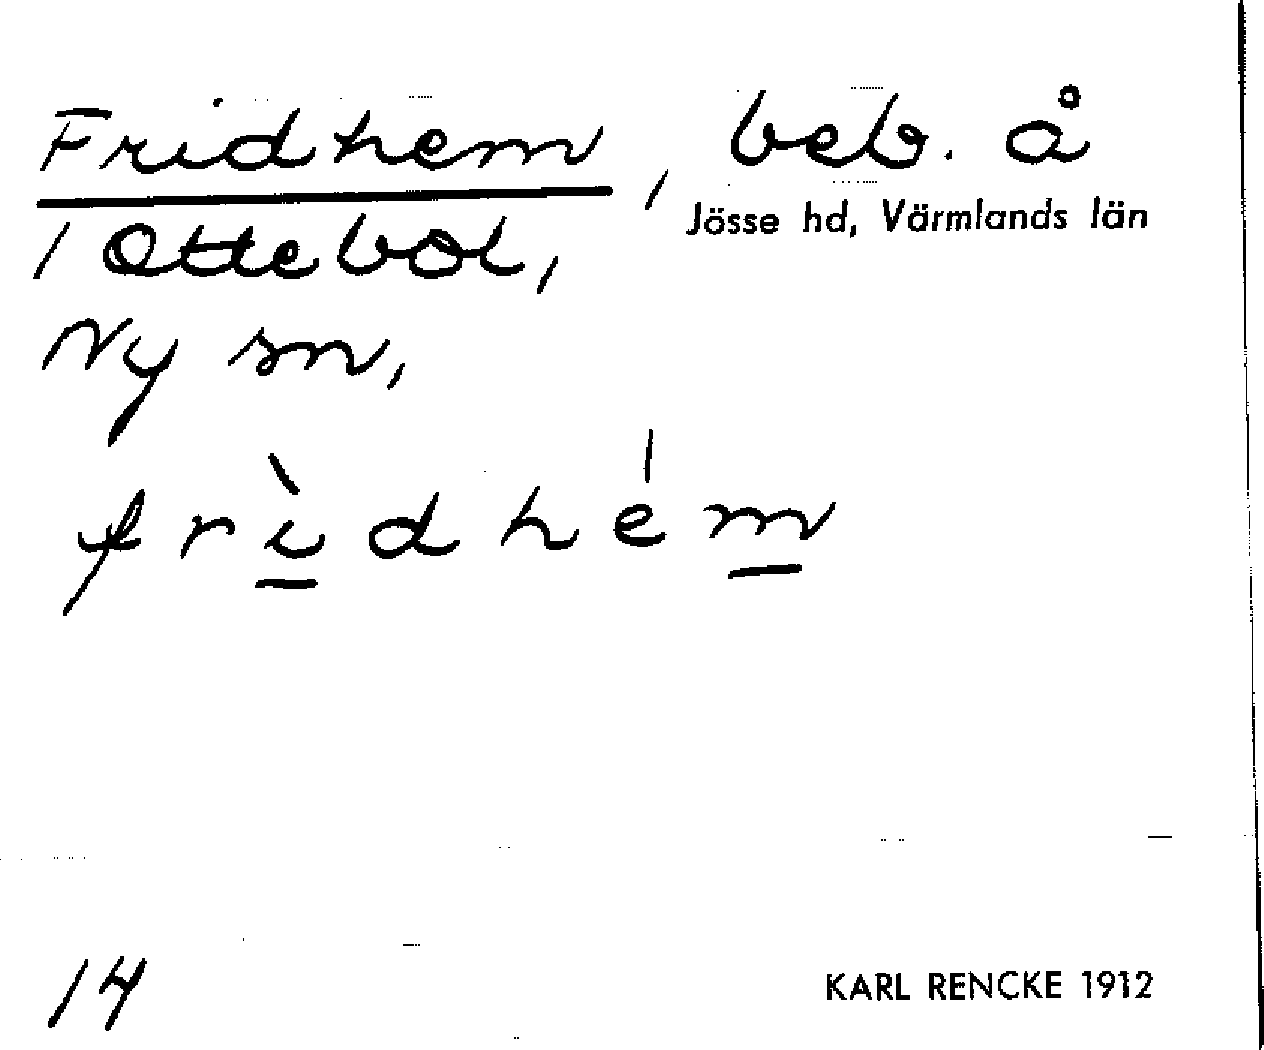 Fridhem, beb. å
Jösse hd, Värmlands län
1 Ottebol,
Ny sn,
frìdhém
14
KARL RENCKE 1912